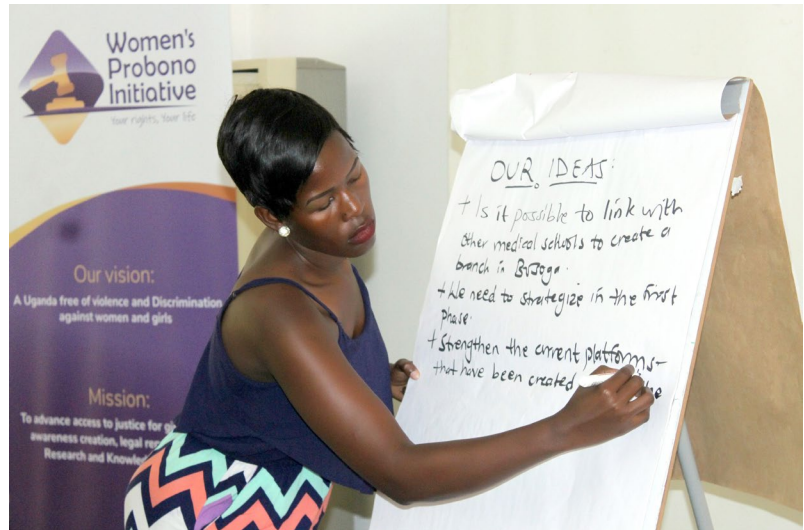 Women's
Probono
Initiative
Your rights, Your life
Our vision:
A Uganda free of violence and Discrimination
against women and girls
Mission:
To advance access to justice for
awareness creation, legal
Research and
OUR IDEAS:
+ Is it possible to link with
other medical schools to create a
branch in Busoga.
+ We need to strategize in the first
phase.
+ Strengthen the current platforms
that have been created